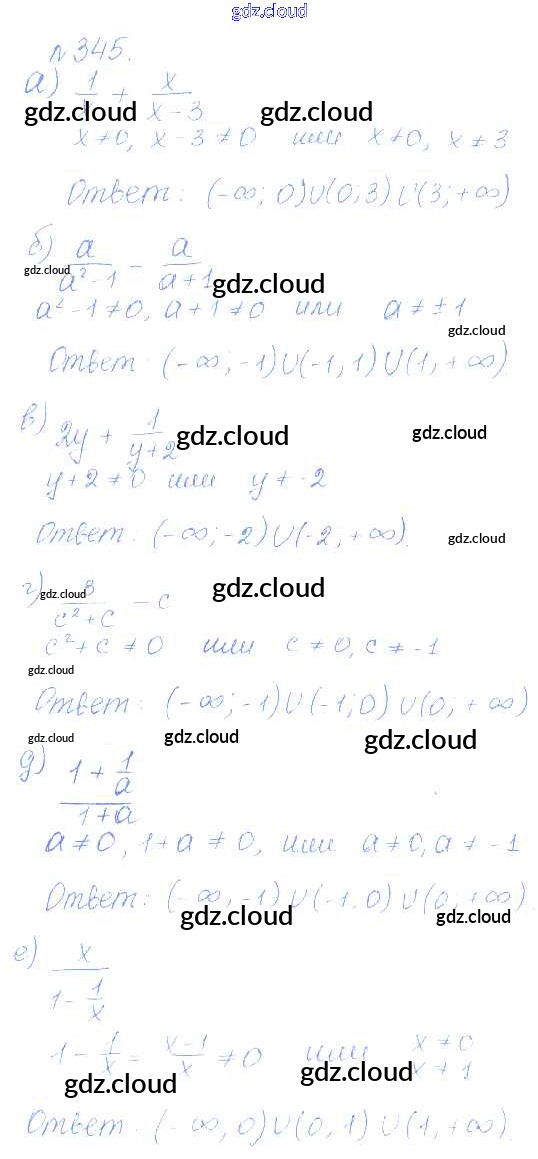 gdz.cloud
№345.
а) 1/x + x/(x-3)
gdz.cloud gdz.cloud
x≠0, x-3≠0 или x≠0, x≠3
Ответ: (-∞; 0)∪(0;3)∪(3;+∞)
б) a/(a²-1) - a/(a+1)
gdz.cloud gdz.cloud
a²-1≠0, a+1≠0 или a≠±1
gdz.cloud
Ответ: (-∞;-1)∪(-1,1)∪(1,+∞)
в) 2y + 1/(y+2)
gdz.cloud gdz.cloud
y+2≠0 или y≠-2
Ответ: (-∞;-2)∪(-2;+∞).
gdz.cloud
г) 3/(c²+c) - c
gdz.cloud gdz.cloud
c²+c≠0 или c≠0, c≠-1
gdz.cloud
Ответ: (-∞;-1)∪(-1;0)∪(0;+∞)
gdz.cloud gdz.cloud gdz.cloud
д) (1+1/a)/(1+a)
a≠0, 1+a≠0, или a≠0, a≠-1
Ответ: (-∞,-1)∪(-1.0)∪(0,+∞)
gdz.cloud gdz.cloud
е) x/(1-1/x)
1-1/x = (x-1)/x ≠0 или x≠0
x≠1
gdz.cloud gdz.cloud
Ответ: (-∞,0)∪(0,1)∪(1,+∞).